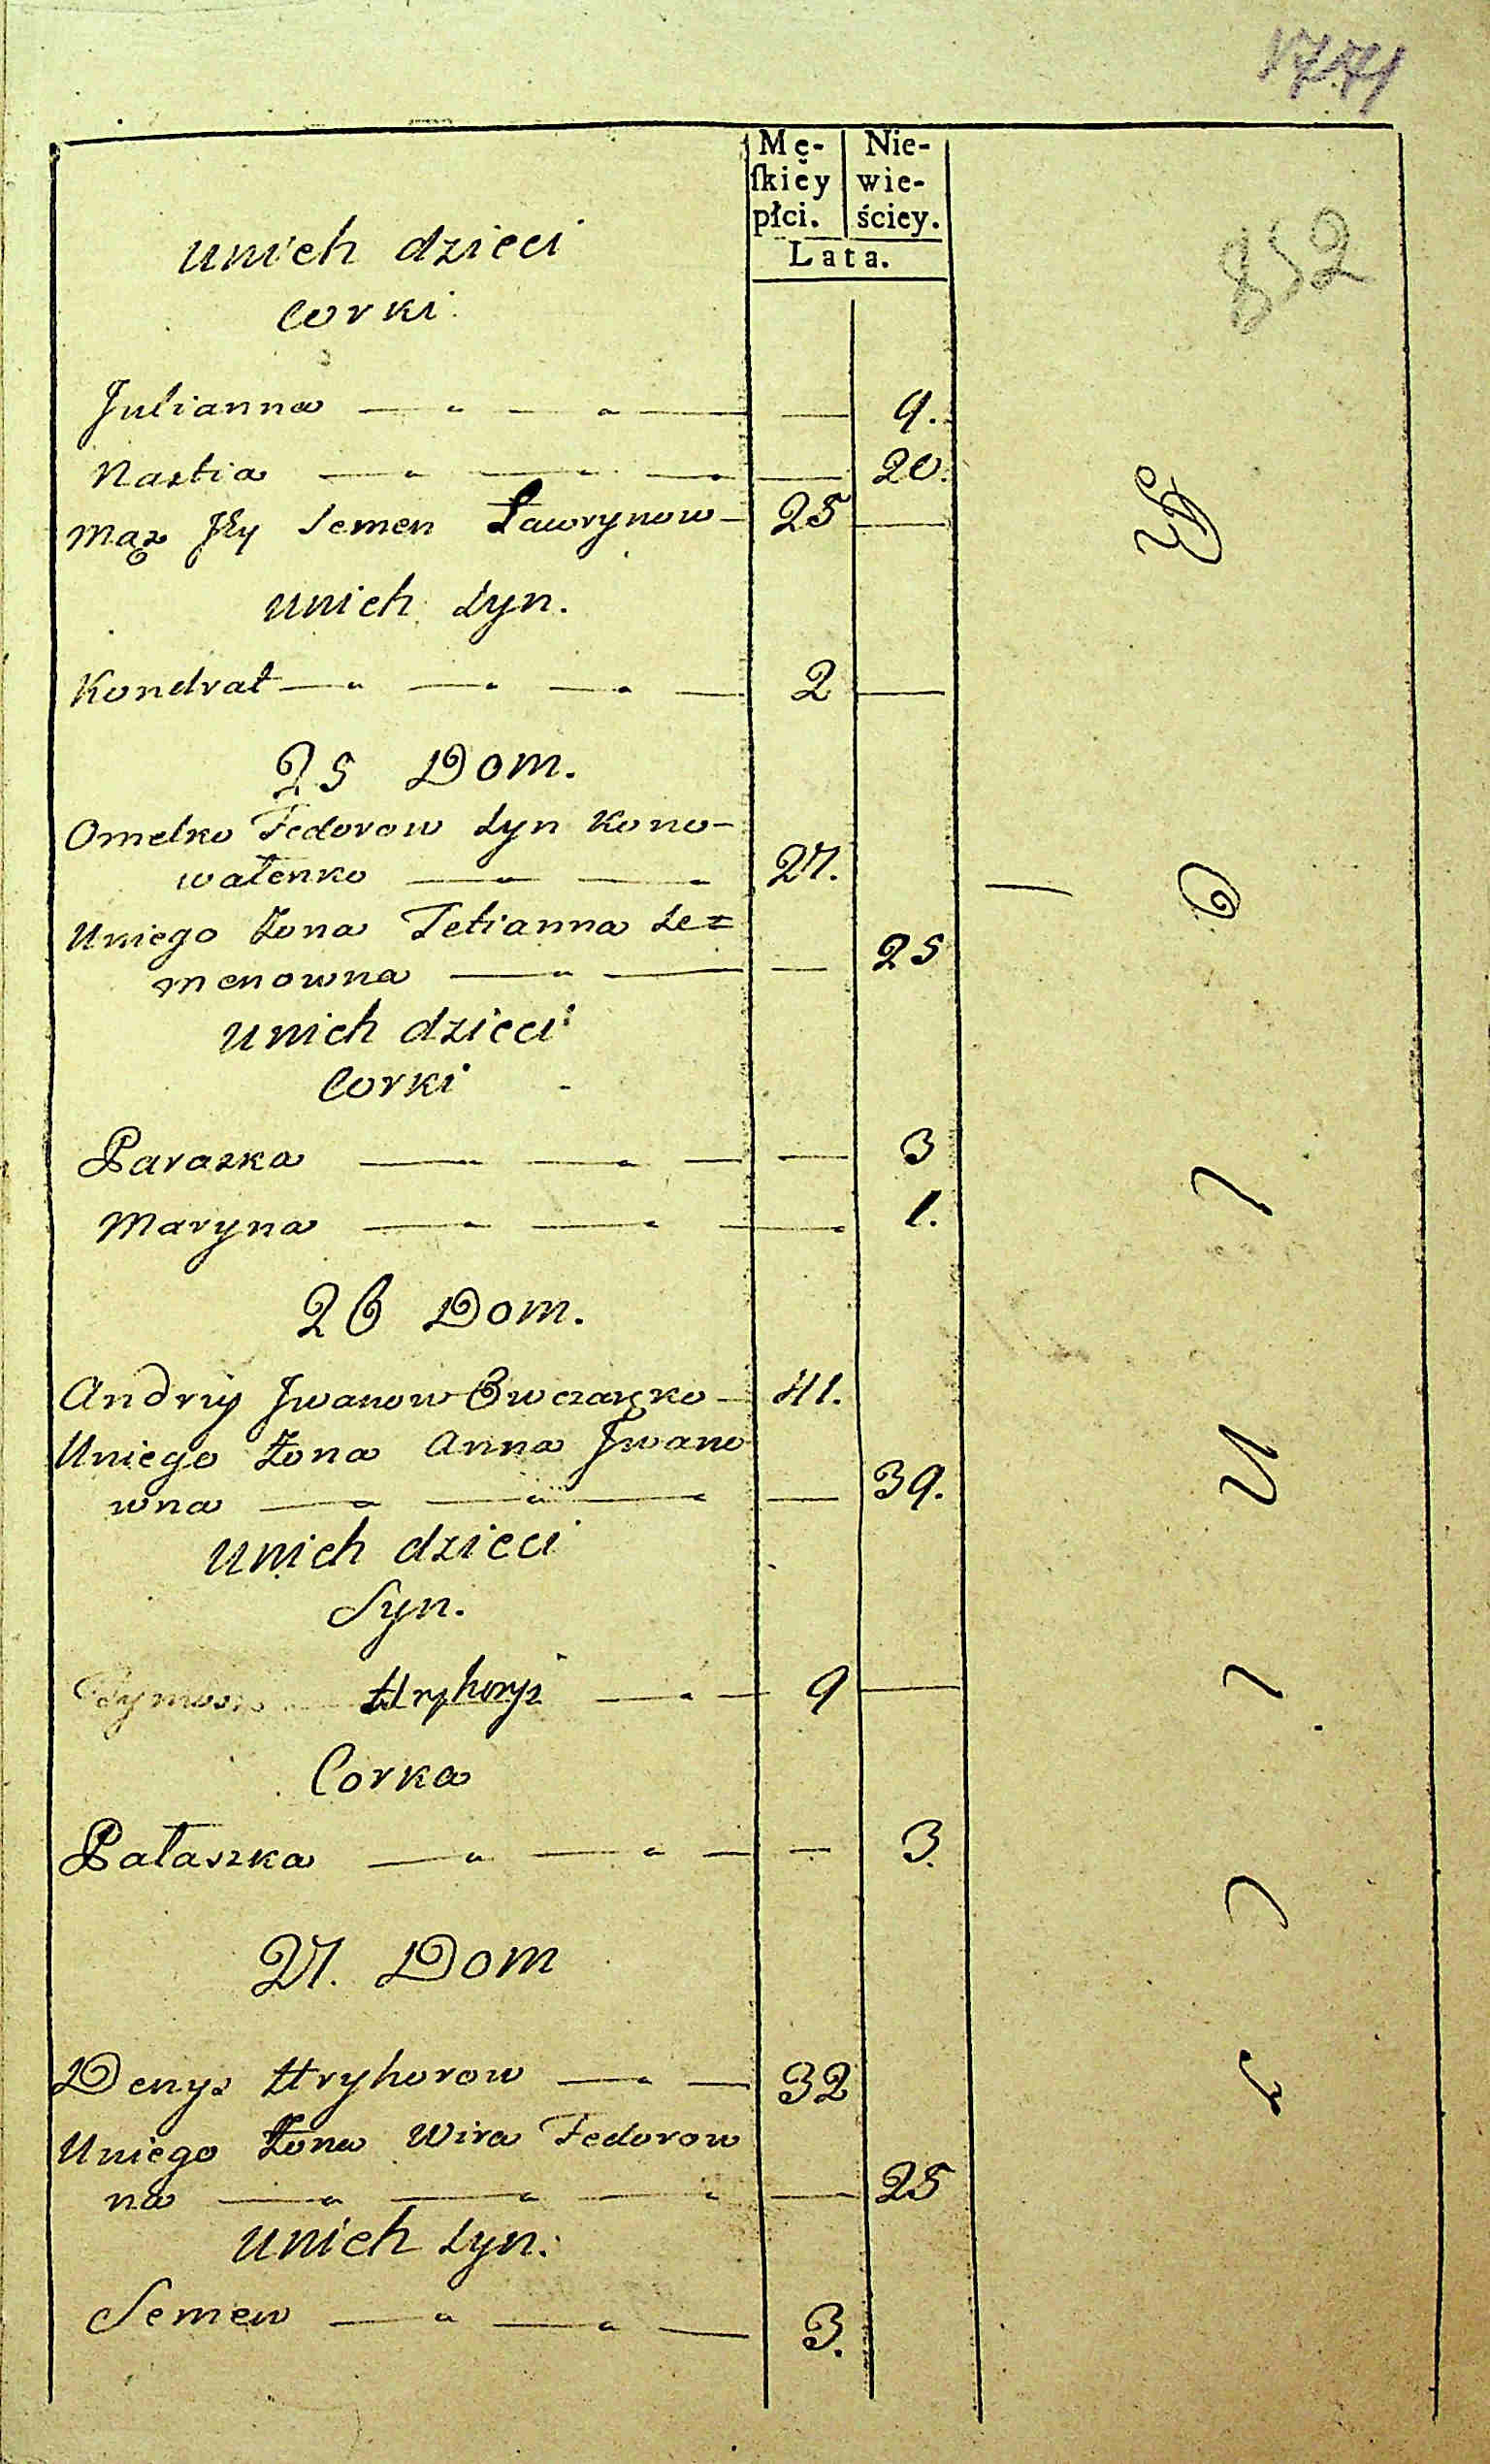 1771
Mę-
ſkiey
płci.
Nie-
wie-
ściey.
Lata.
852
unich dzieci
Corki
Julianna 9.
Nastia 20.
Mąz Jey Semen Ławrynow 25
unich Syn.
Kondrat 2
25 Dom.
Omelko Fedorow Syn Kono-
wałenko 27.
Uniego Żona Tetianna Se=
menowna 25
unich dzieci
Corki
Paraska 3
Maryna 1.
26 Dom.
Andriy Jwanow Owczarzko 41.
Uniego Żona Anna Jwano
wna 39.
unich dzieci
Syn.
Hryhoryi 9
Corka
Pałaszka 3.
27. Dom
Denys Hryhorow 32
Uniego Żona Wira Fedorow
na 25
unich Syn.
Semen 3.